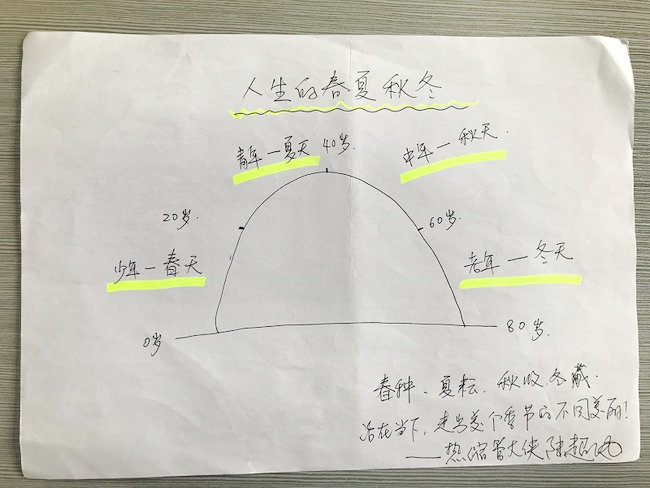 人生的春夏秋冬
青年一夏天
40岁.
中年一秋天.
20岁.
60岁.
少年一春天
老年一冬天
0岁
80岁.
春种、夏耘、秋收、冬藏.
活在当下,走好每个季节的不同美丽!
——热缩管大侠陈超